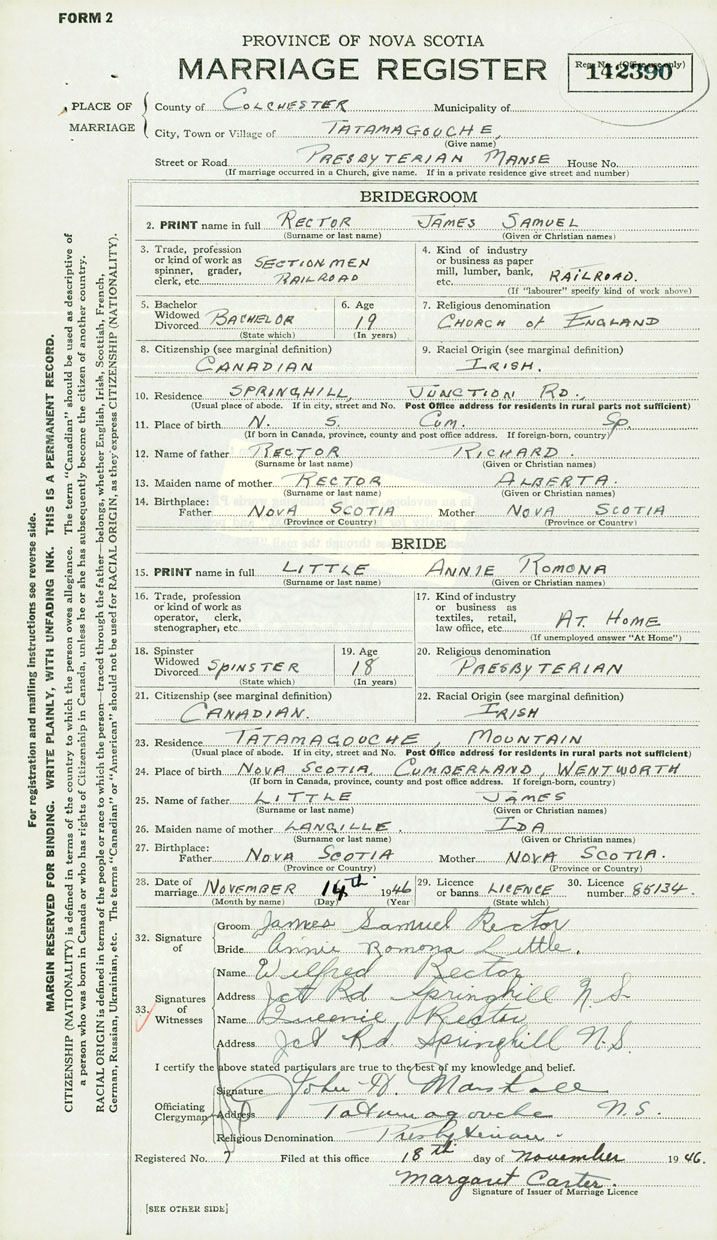 FORM 2
PROVINCE OF NOVA SCOTIA
MARRIAGE REGISTER
Reg. No. (Office use only)
142390
PLACE OF MARRIAGE
County of COLCHESTER Municipality of
City, Town or Village of TATAMAGOUCHE,
(Give name)
Street or Road PRESBYTERIAN MANSE House No.
(If marriage occurred in a Church, give name. If in a private residence give street and number)
BRIDEGROOM
2. PRINT name in full RECTOR JAMES SAMUEL
(Surname or last name) (Given or Christian names)
3. Trade, profession or kind of work as spinner, grader, clerk, etc. SECTIONMEN RAILROAD
4. Kind of industry or business as paper mill, lumber, bank, etc. RAILROAD.
(If "labourer" specify kind of work above)
5. Bachelor Widowed Divorced BACHELOR
(State which)
6. Age 19
(In years)
7. Religious denomination
CHURCH of ENGLAND
8. Citizenship (see marginal definition)
CANADIAN
9. Racial Origin (see marginal definition)
IRISH.
10. Residence SPRINGHILL, JUNCTION RD.,
(Usual place of abode. If in city, street and No. Post Office address for residents in rural parts not sufficient)
11. Place of birth N. S. CUM. Sp.
(If born in Canada, province, county and post office address. If foreign-born, country)
12. Name of father RECTOR RICHARD.
(Surname or last name) (Given or Christian names)
13. Maiden name of mother RECTOR ALBERTA.
(Surname or last name) (Given or Christian names)
14. Birthplace:
Father NOVA SCOTIA Mother NOVA SCOTIA
(Province or Country) (Province or Country)
BRIDE
15. PRINT name in full LITTLE ANNIE ROMONA
(Surname or last name) (Given or Christian names)
16. Trade, profession or kind of work as operator, clerk, stenographer, etc.
17. Kind of industry or business as textiles, retail, law office, etc. AT HOME
(If unemployed answer "At Home")
18. Spinster Widowed Divorced SPINSTER
(State which)
19. Age 18
(In years)
20. Religious denomination
PRESBYTERIAN
21. Citizenship (see marginal definition)
CANADIAN.
22. Racial Origin (see marginal definition)
IRISH
23. Residence TATAMAGOUCHE, MOUNTAIN
(Usual place of abode. If in city, street and No. Post Office address for residents in rural parts not sufficient)
24. Place of birth NOVA SCOTIA, CUMBERLAND, WENTWORTH
(If born in Canada, province, county and post office address. If foreign-born, country)
25. Name of father LITTLE JAMES
(Surname or last name) (Given or Christian names)
26. Maiden name of mother LANGILLE. IDA
(Surname or last name) (Given or Christian names)
27. Birthplace:
Father NOVA SCOTIA Mother NOVA SCOTIA.
(Province or Country) (Province or Country)
28. Date of marriage NOVEMBER 14th 1946 29. Licence or banns LICENCE 30. Licence number 85134.
(Month by name) (Day) (Year (State which)
32. Signature of
Groom James Samuel Rector
Bride Annie Romona Little.
33. Signatures of Witnesses
Name Wilfred Rector
Address Jct Rd Springhill N.S.
Name Queenie Rector
Address Jct Rd. Springhill N.S.
I certify the above stated particulars are true to the best of my knowledge and belief.
Officiating Clergyman
Signature John H. Marshall
Address Tatamagouche N.S.
Religious Denomination Presbyterian.
Registered No. 7 Filed at this office 18th day of November 1946.
Margaret Carter.
Signature of Issuer of Marriage Licence
[SEE OTHER SIDE]
For registration and mailing instructions see reverse side.
MARGIN RESERVED FOR BINDING. WRITE PLAINLY, WITH UNFADING INK. THIS IS A PERMANENT RECORD.
CITIZENSHIP (NATIONALITY) is defined in terms of the country to which the person owes allegiance. The term "Canadian" should be used as descriptive of
a person who was born in Canada or who has rights of Citizenship in Canada, unless he or she has subsequently become the citizen of another country.
RACIAL ORIGIN is defined in terms of the people or race to which the person—traced through the father—belongs, whether English, Irish, Scottish, French,
German, Russian, Ukrainian, etc. The terms "Canadian" or "American" should not be used for RACIAL ORIGIN, as they express CITIZENSHIP (NATIONALITY).